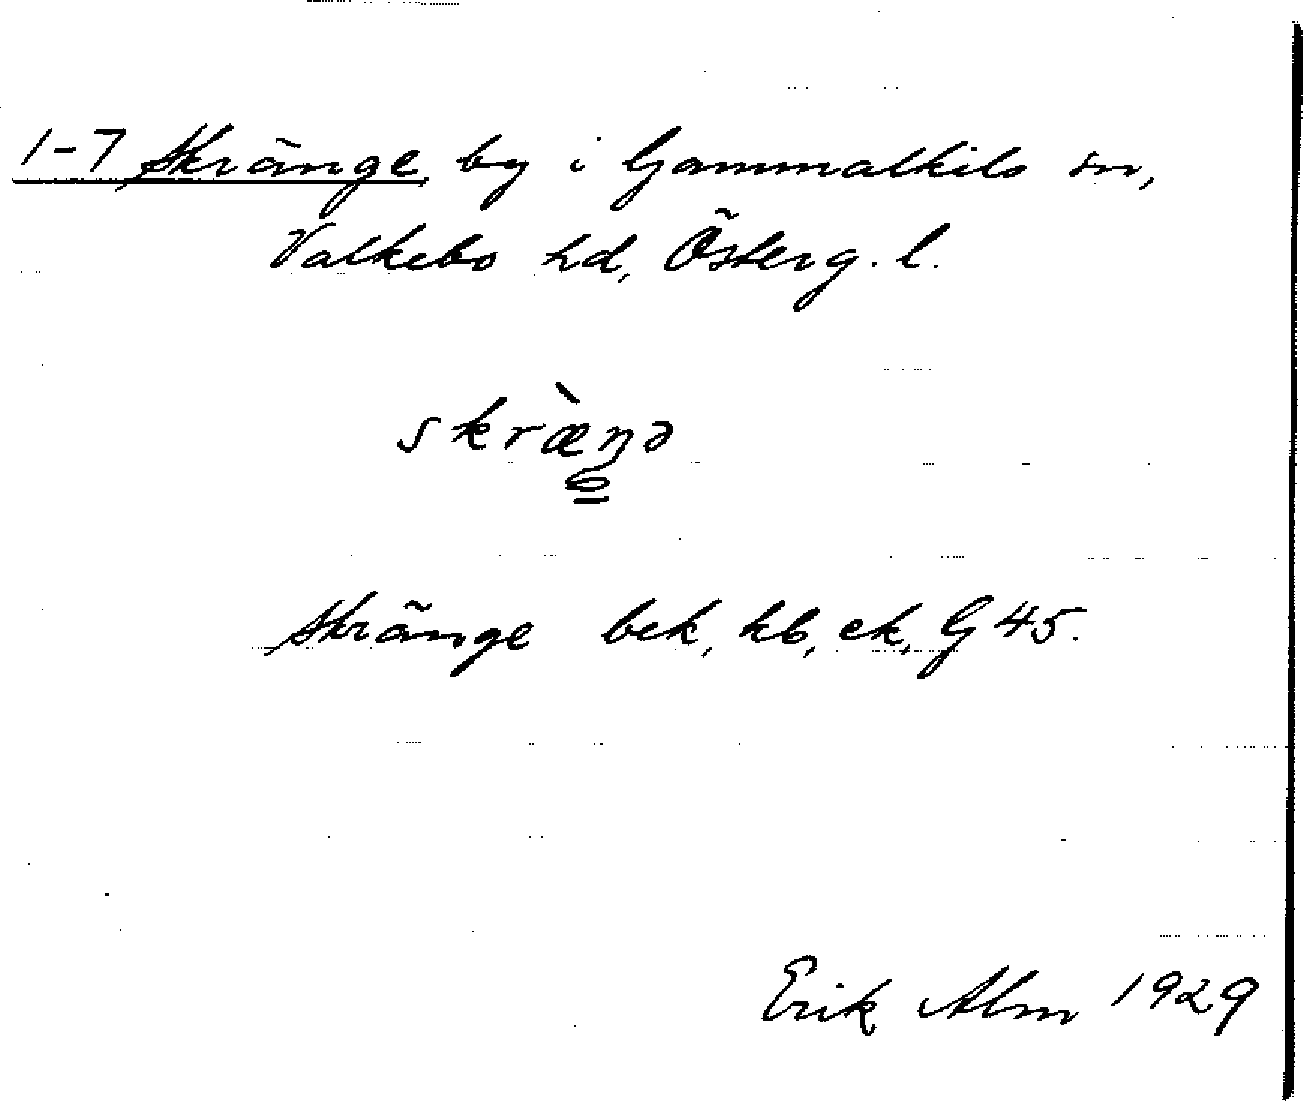 1-7 Skränge by i Gammalkils sn,
Valkebo hd, Österg. l.
skræ̀ŋə
Skränge bek, kb, ek, G 45.
Erik Alm 1929